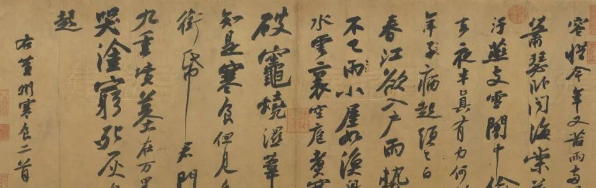 容惜今年又苦雨兩
蕭瑟臥聞海棠
汙燕支雪闇中偷
去夜半真有力何
年子病起頭已白
春江欲入戶雨勢
不已雨小屋如漁
水雲裏空庖煮寒
破竈燒濕葦
知是寒食但見
銜帋君門
九重墳墓在万里
哭塗窮死灰
起
右黃州寒食二首